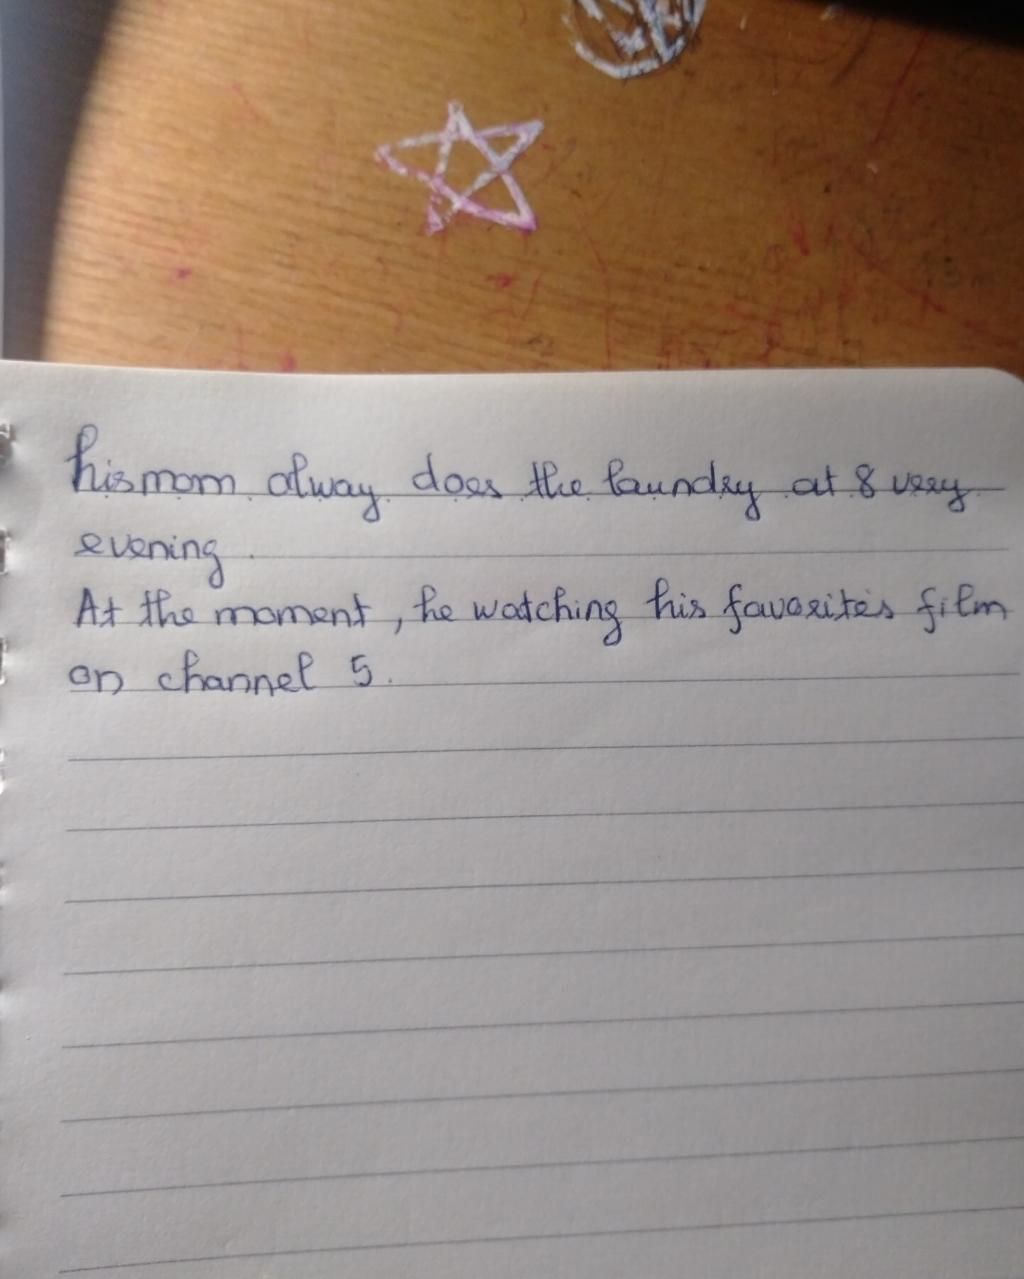 his mom alway does the laundry at 8 very
evening.
At the moment, he watching his favorites film
on channel 5.